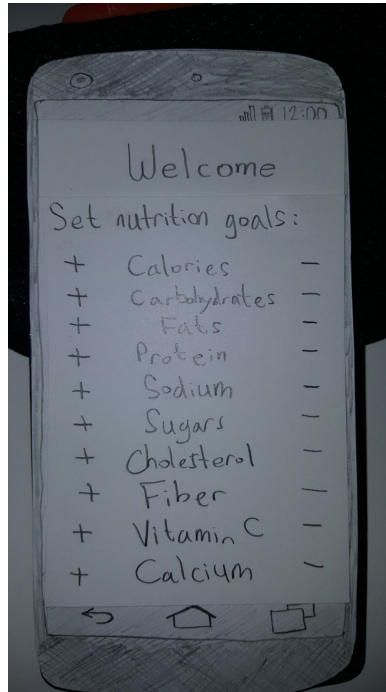 12:00
Welcome
Set nutrition goals:
+ Calories -
+ Carbohydrates -
+ Fats -
+ Protein -
+ Sodium -
+ Sugars -
+ Cholesterol -
+ Fiber -
+ Vitamin C -
+ Calcium -